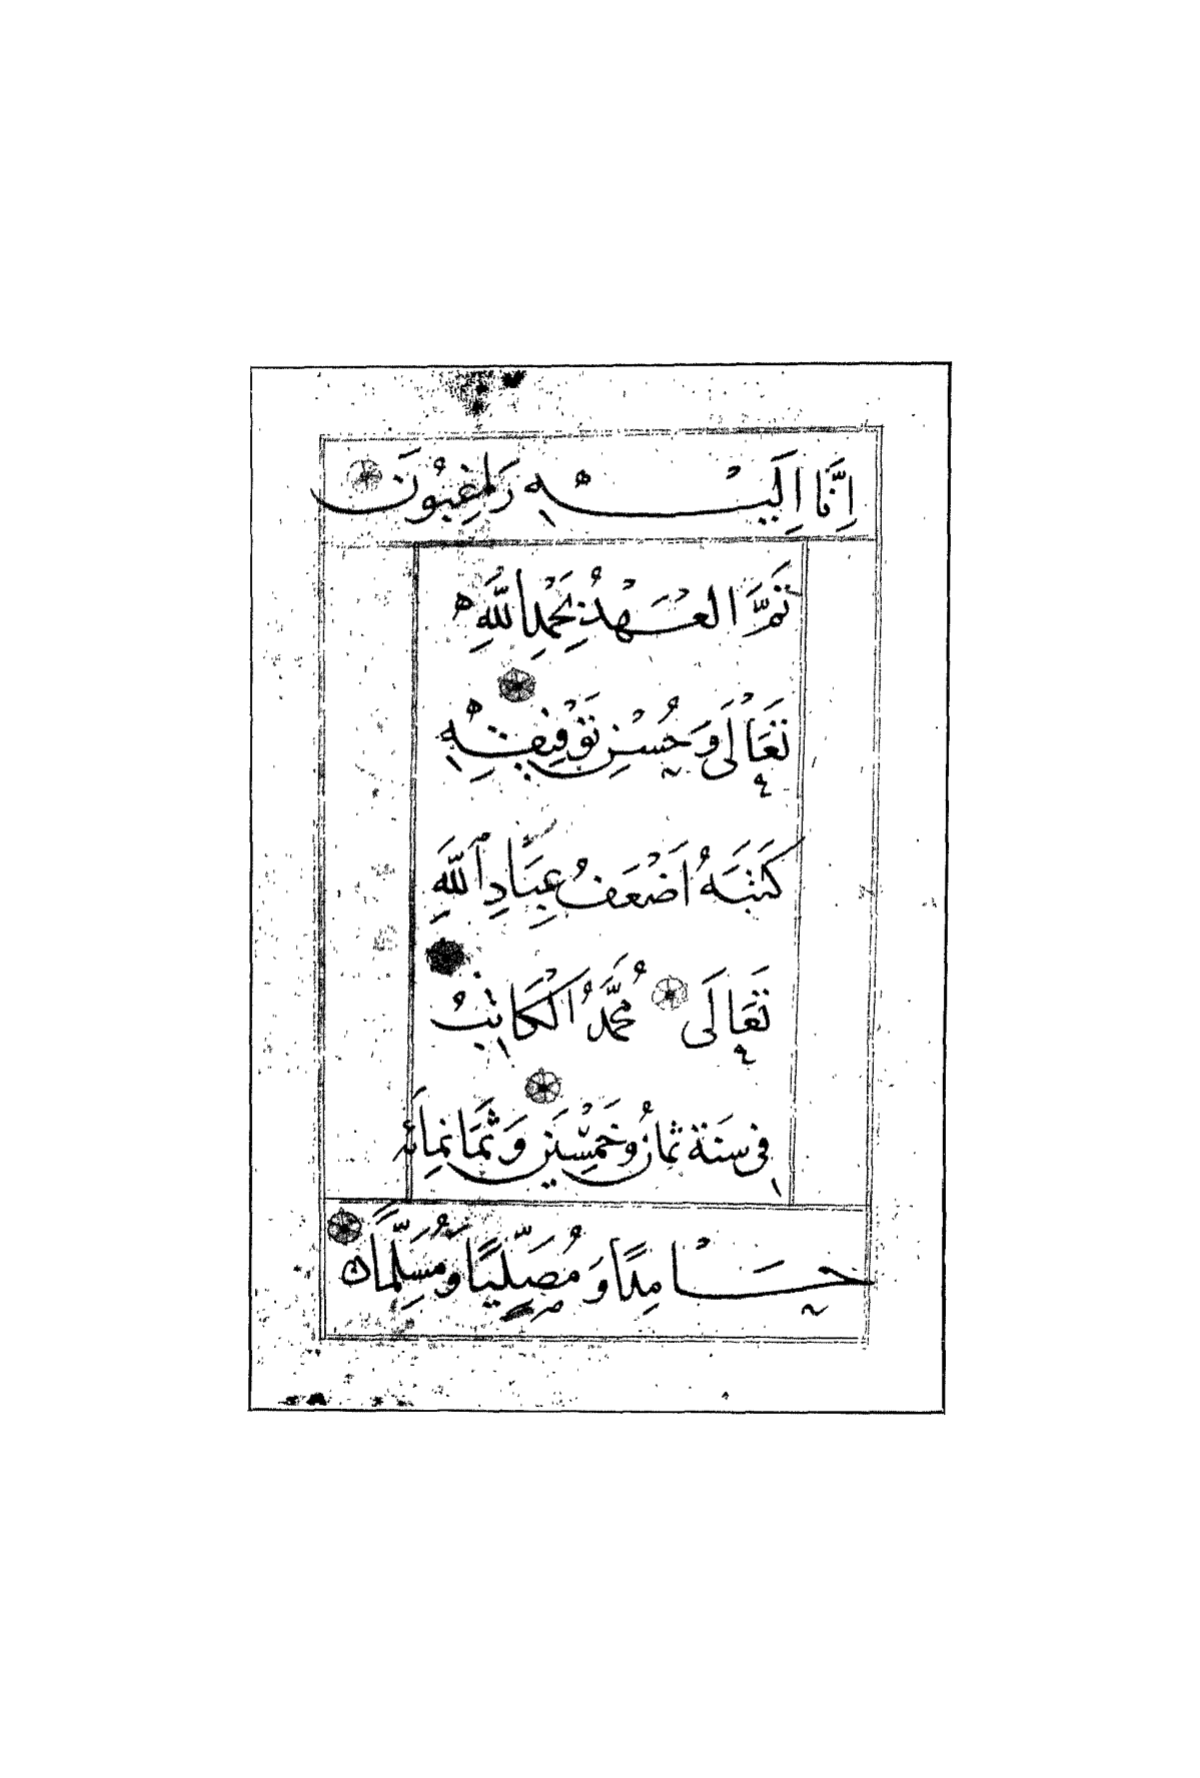 اِنَّا اِلَيْهِ رَاغِبُونَ
تَمَّ الْعَهْدُ بِحَمْدِ اللَّهِ
تَعَالَى وَحُسْنِ تَوْفِيقِهِ
كَتَبَهُ اَضْعَفُ عِبَادِ اللَّهِ
تَعَالَى مُحَمَّدُ الْكَاتِبُ
فِي سنَة ثمانُ وخَمْسِينَ وَثَمَانمِائَة
حَامِدًا وَمُصَلِّيًا وَمُسَلِّمًا